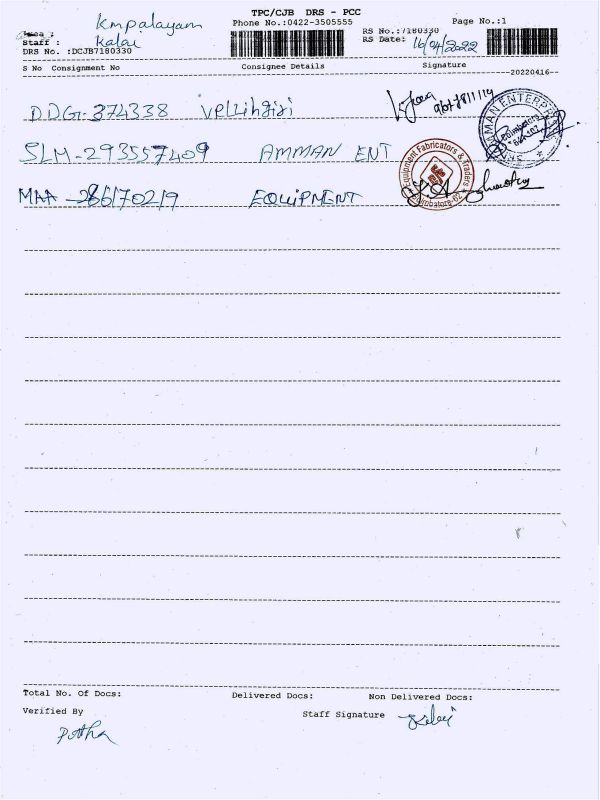 TPC/CJB DRS - PCC
Phone No.:0422-3505555 Page No.:1
Area : Kmpalayam
Staff : Kalai
DRS No. :DCJB7180330
RS No.:7180330
RS Date: 16/04/2022
S No Consignment No Consignee Details Signature
20220416
DDG-374338 Vellihgiri
SLM-293557409 AMMAN ENT
MAA-286170219 EQUIPMENT
Equipment Fabricators & Traders
Coimbatore-62
Total No. Of Docs: Delivered Docs: Non Delivered Docs:
Verified By
Staff Signature